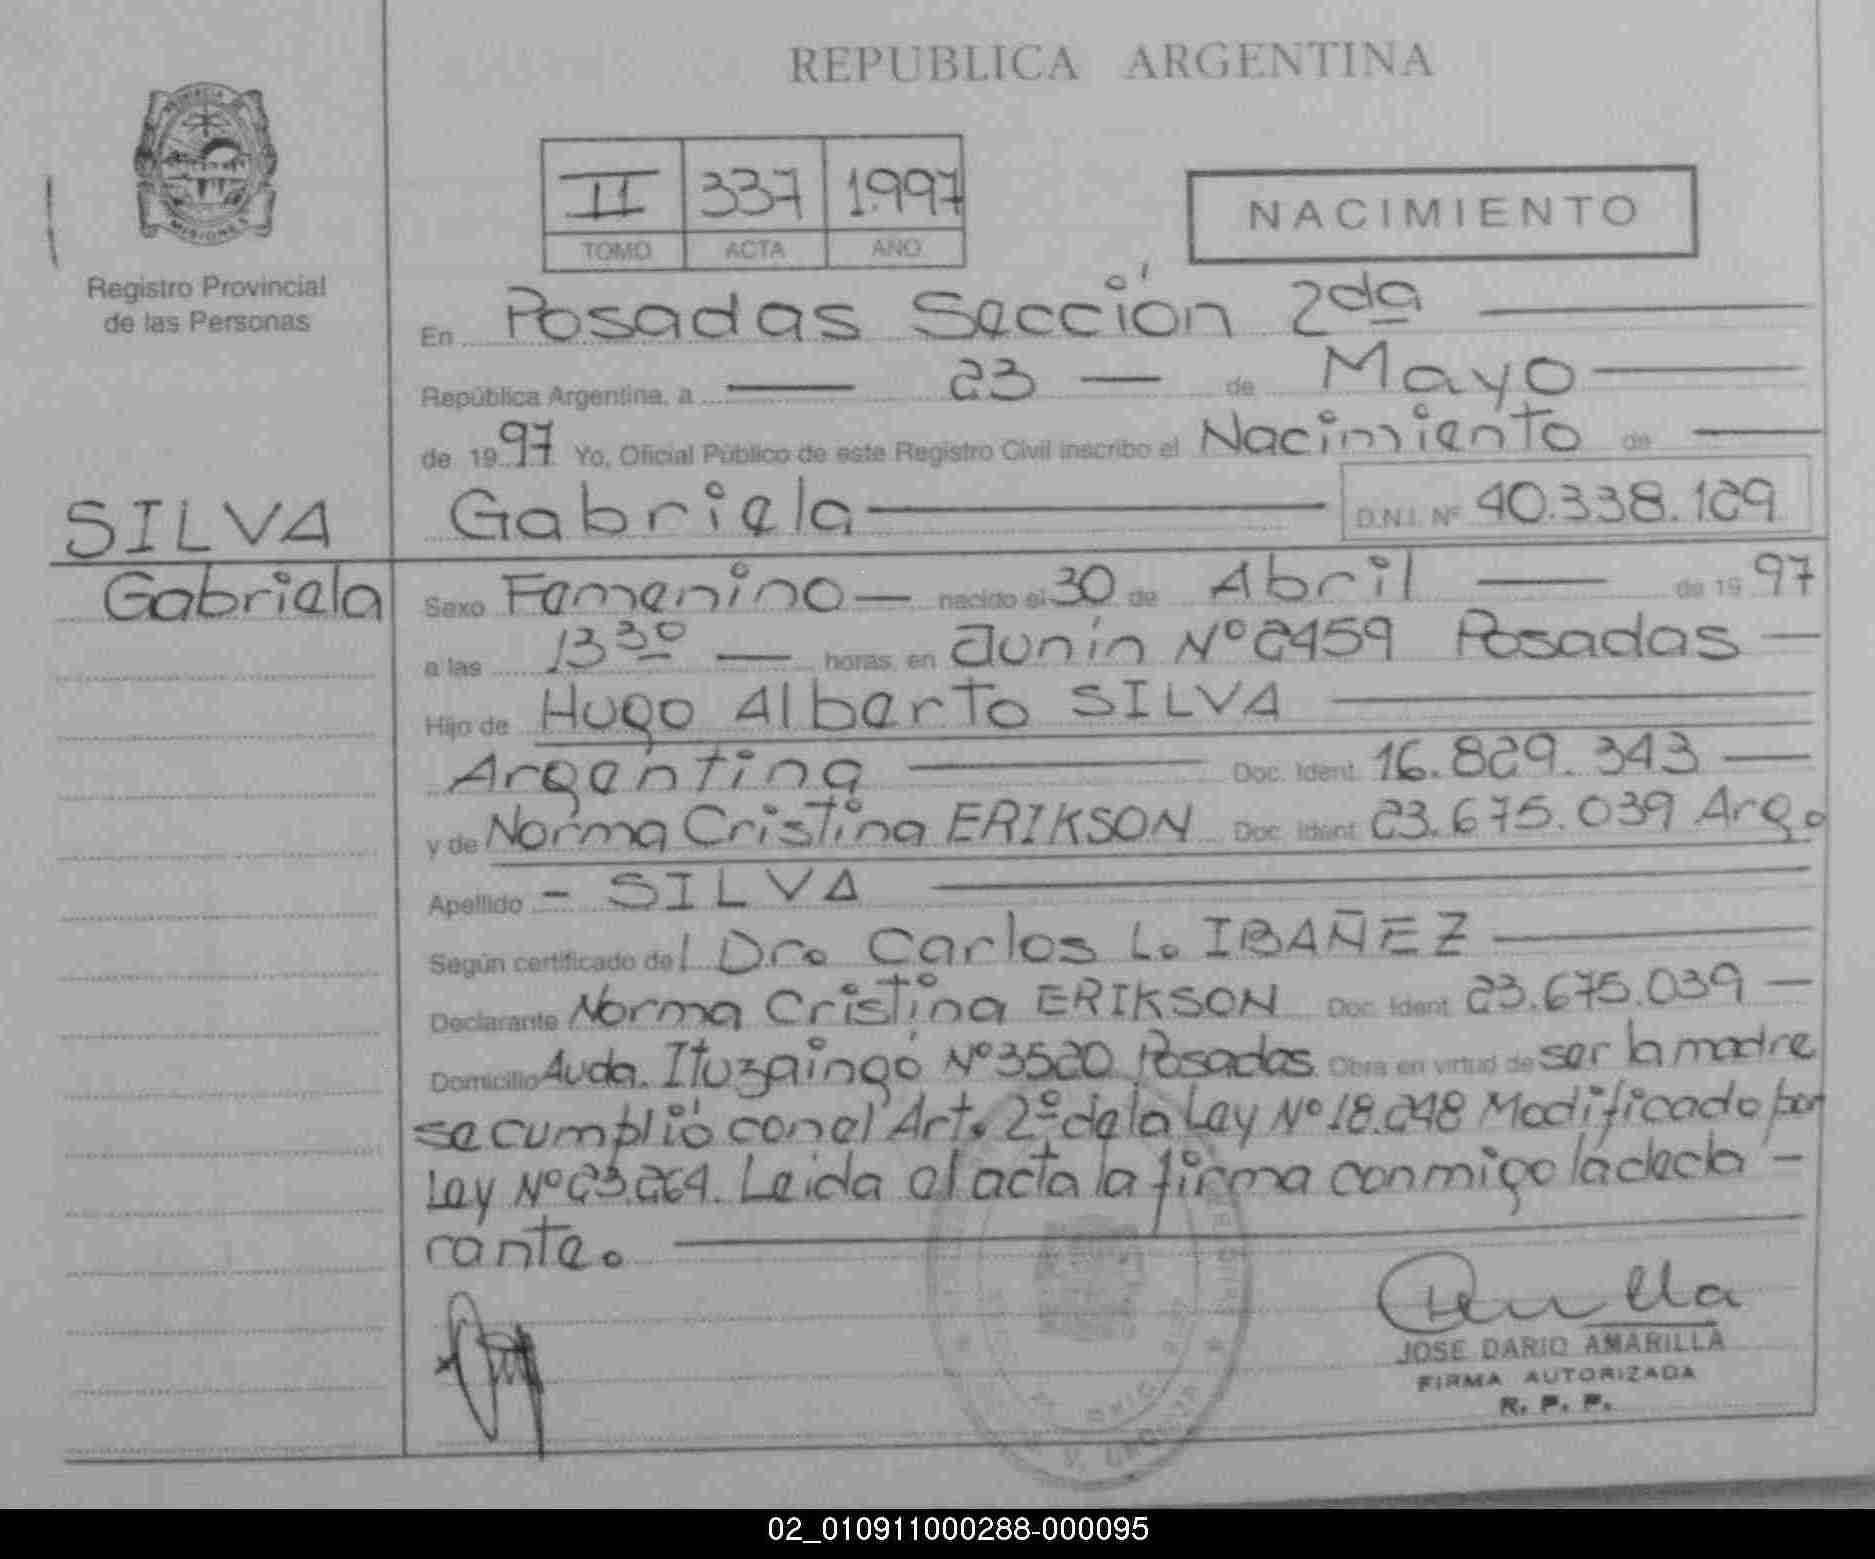 REPUBLICA ARGENTINA
PROVINCIA
MISIONES
Registro Provincial
de las Personas
II 337 1.997
TOMO ACTA AÑO
NACIMIENTO
En Posadas Sección 2da
República Argentina, a 23 de Mayo
de 19 97 Yo, Oficial Público de este Registro Civil inscribo el Nacimiento de
SILVA Gabriela D.N.I. Nº 40.338.129
Gabriela Sexo Femenino nacido el 30 de Abril de 19 97
a las 13 30 horas, en Junín Nº 2459 Posadas
Hijo de Hugo Alberto SILVA
Argentina Doc. Ident. 16.829.343
y de Norma Cristina ERIKSON Doc. Ident. 23.675.039 Arg.
Apellido - SILVA
Según certificado del Dr. Carlos L. IBAÑEZ
Declarante Norma Cristina ERIKSON Doc. Ident. 23.675.039
Domicilio Avda. Ituzaingó Nº 3520 Posadas. Obra en virtud de ser la madre
se cumplió con el Art. 2º de la Ley Nº 18.248 Modificado por
Ley Nº 23.264. Leida el acta la firma conmigo la decla-
rante.
JOSE DARIO AMARILLA
FIRMA AUTORIZADA
R. P. P.
02_010911000288-000095